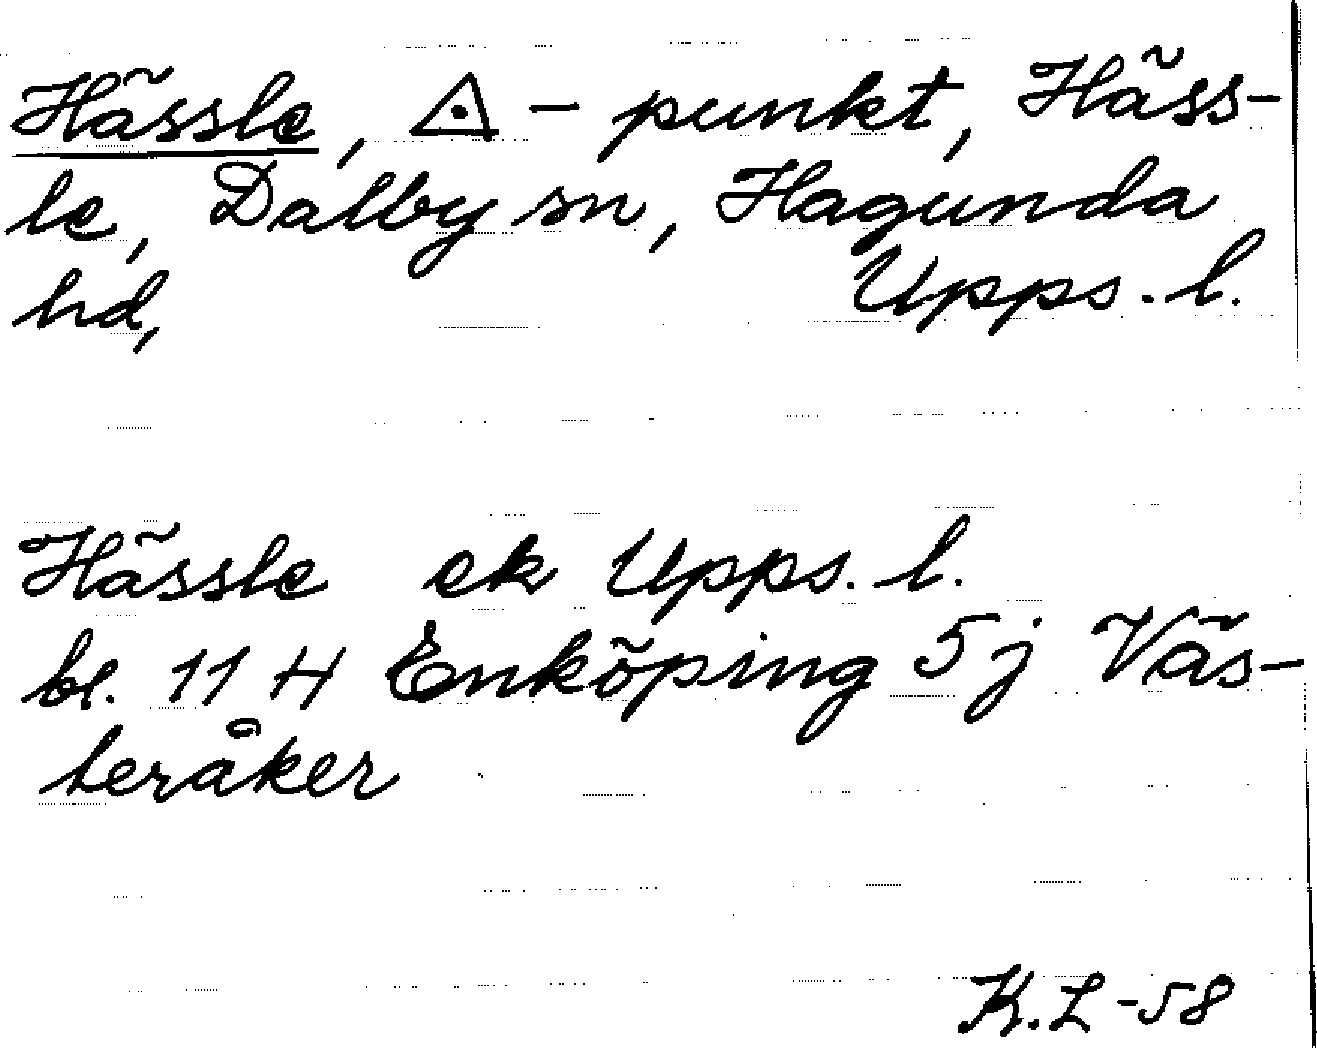 Hässle, △ - punkt, Häss-
le, Dalby sn, Hagunda
hd, Upps. l.
Hässle ek Upps. l.
bl. 11 H Enköping 5j Väs-
teråker
K.L -58